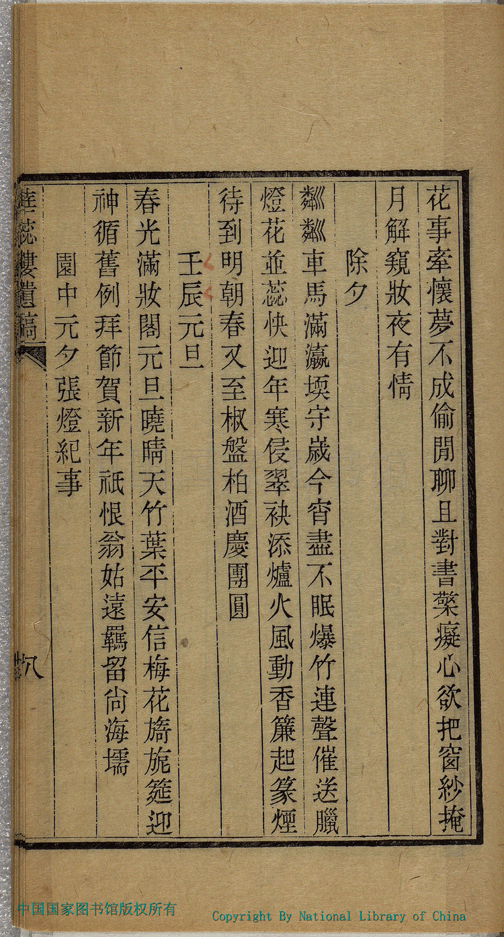 花事牽懷夢不成偷閒聊且對書檠癡心欲把窗紗掩
月解窺妝夜有情
除夕
粼粼車馬滿瀛堧守歲今宵盡不眠爆竹連聲催送臘
燈花並蕊快迎年寒侵翠袂添爐火風動香簾起篆煙
待到明朝春又至椒盤柏酒慶團圓
壬辰元旦
春光滿妝閣元旦曉晴天竹葉平安信梅花旖旎筵迎
神循舊例拜節賀新年祇恨翁姑遠羈留尚海壖
園中元夕張燈紀事
蕊樓遺稿
八
中国国家图书馆版权所有
Copyright By National Library of China